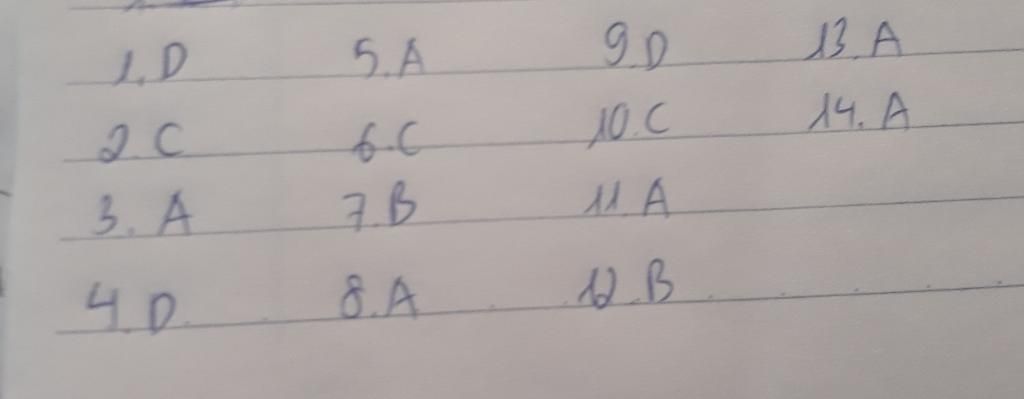 1. D 5. A 9. D 13. A
2. C 6. C 10. C 14. A
3. A 7. B 11. A
4. D 8. A 12. B